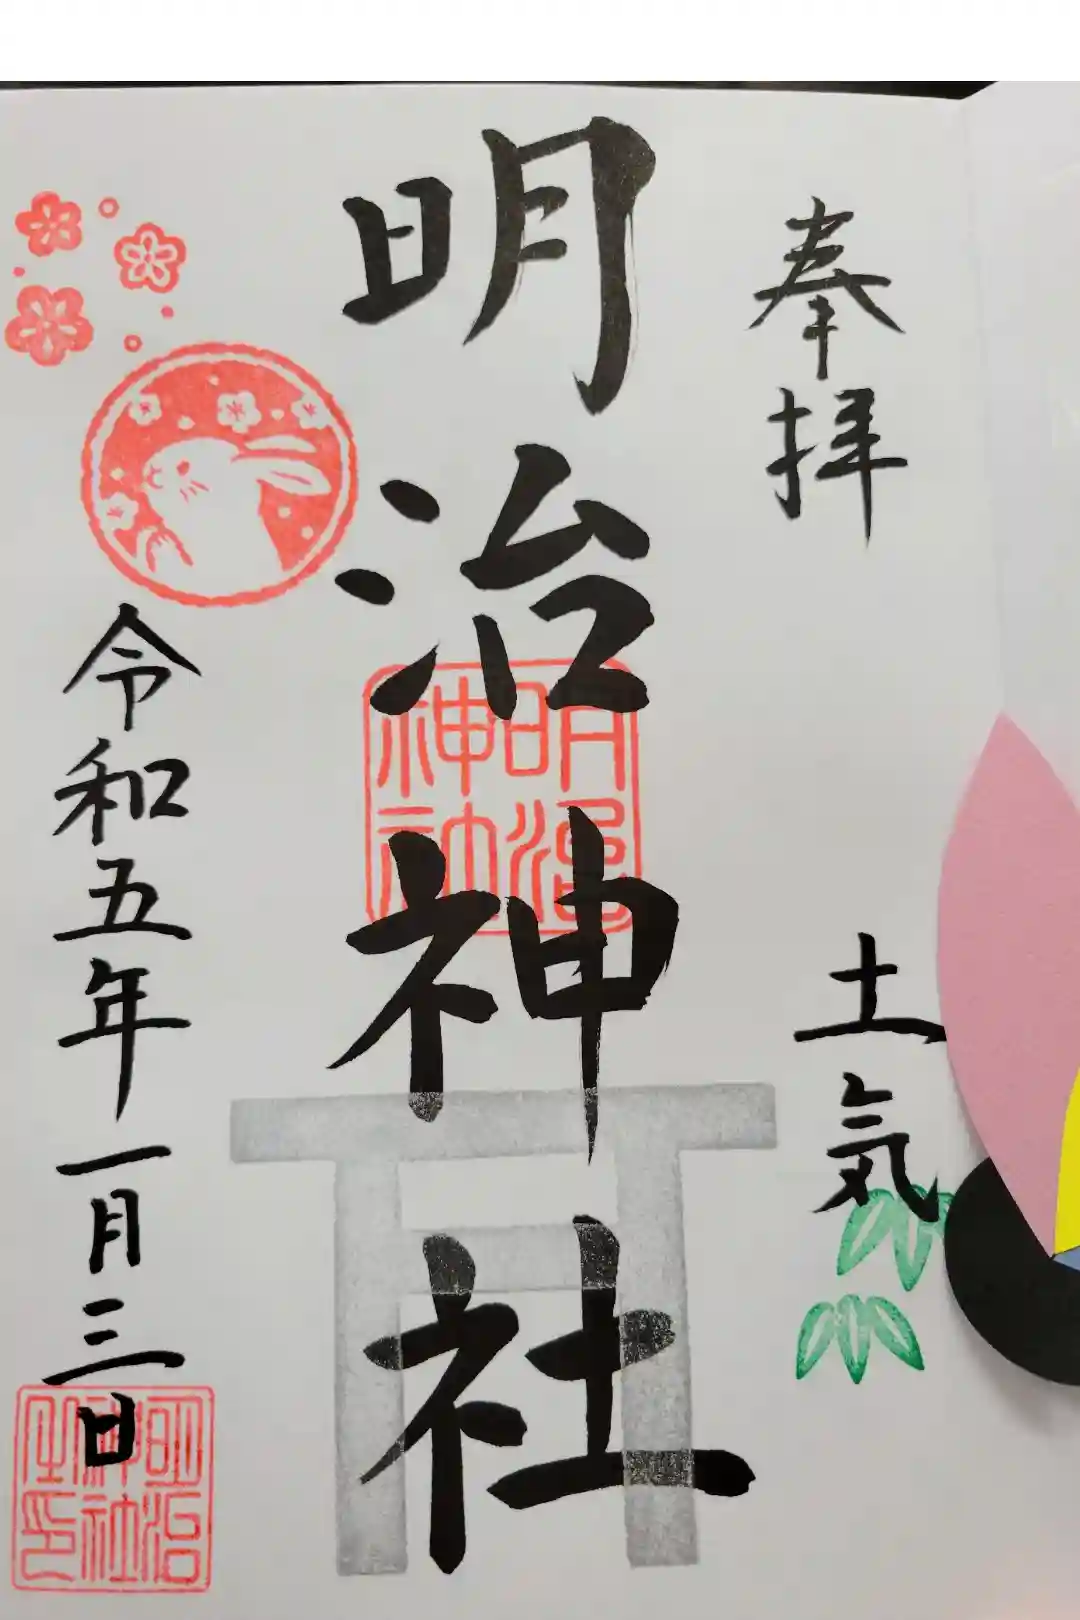 奉拝
土気
明治神社
明治
神社
令和五年一月三日
明治
神社
之印